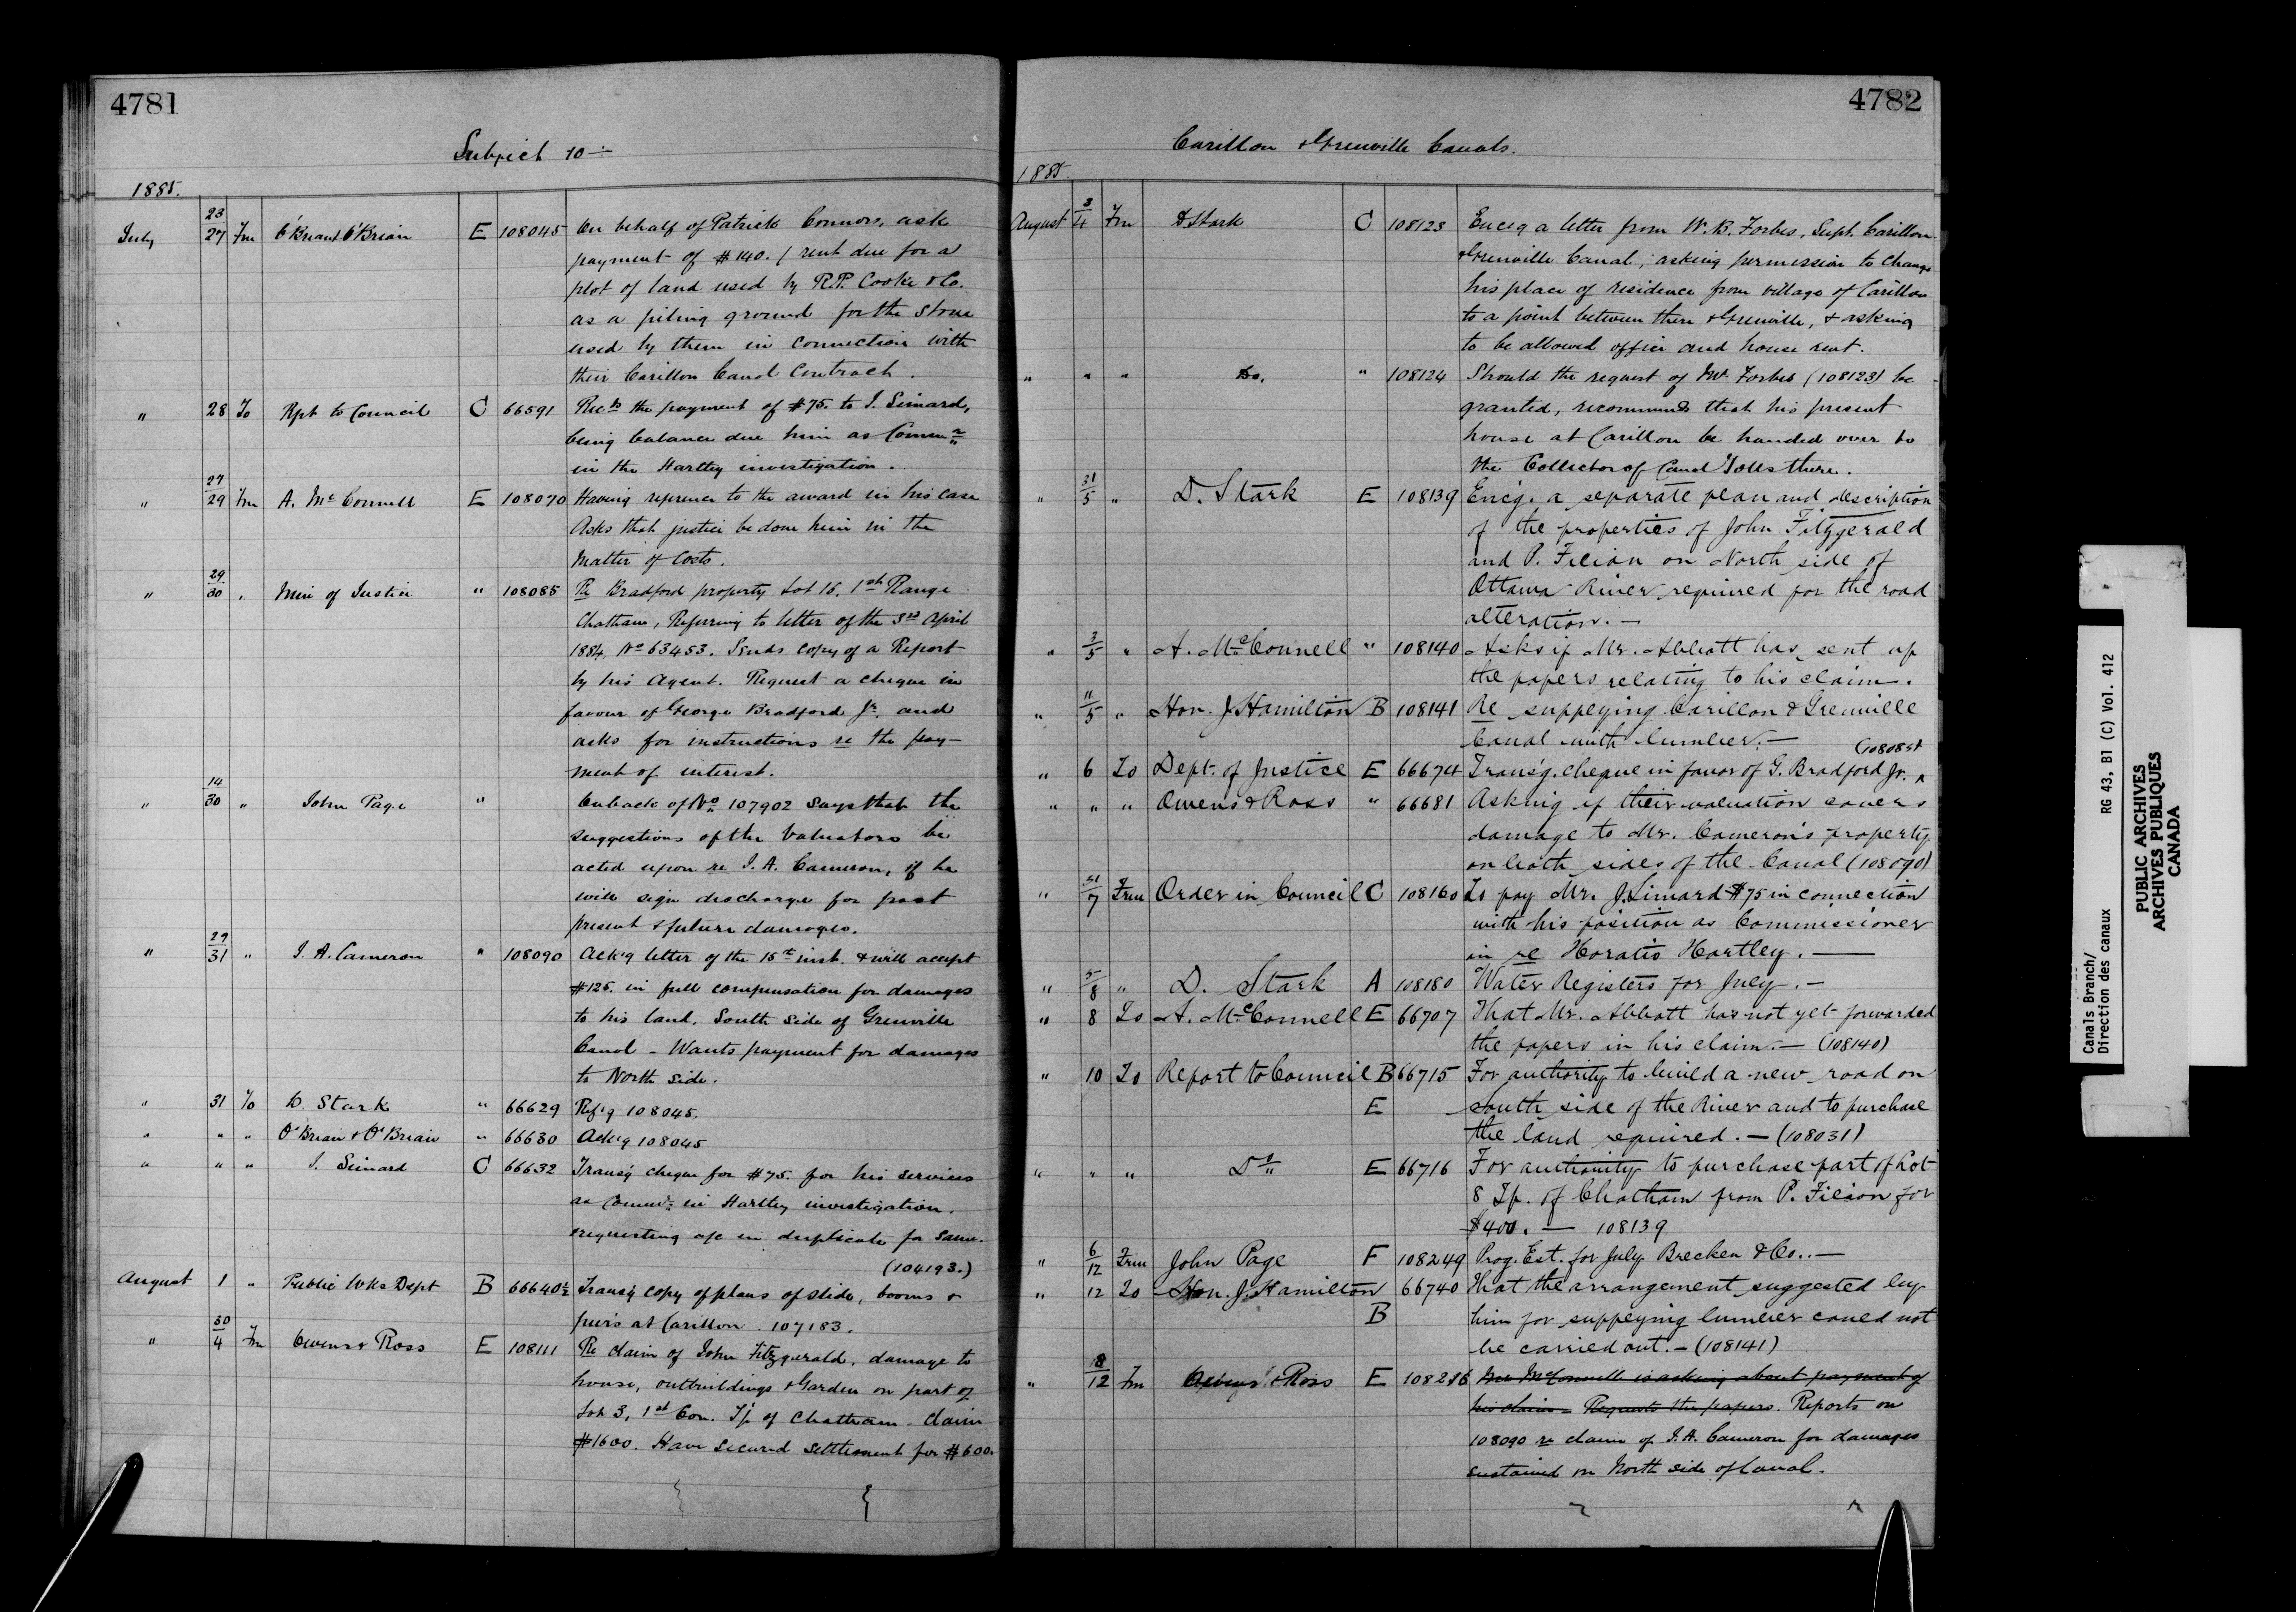 4781
Subject 10
1885.
July 23/27 Fm O'Brian & O'Brian E 108045 On behalf of Patrick Connors, ask
payment of $140. / rent due for a
plot of land used by R.P. Cooke & Co.
as a piling ground for the stone
used by them in connection with
their Carillon Canal Contract.
" 28 To Rpt to Council C 66591 Rec̲d̲s̲ the payment of $75. to J. Simard,
being balance due him as Commr
in the Hartley investigation.
" 27/29 Fm A. McConnell E 108070 Having reference to the award in his case
Asks that justice be done him in the
matter of costs.
" 29/30 " Min of Justice " 108085 Re Bradford property Lot 16, 1st Range
Chatham, Referring to letter of the 3rd April
1884, No 63453. Sends copy of a Report
by his Agent. Request a cheque in
favour of George Bradford Jr. and
asks for instructions re the pay-
ment of interest.
" 14/30 " John Page " On back of No 107902 says that the
suggestions of the Valuators be
acted upon re J. A. Cameron, if he
will sign discharge for past
present & future damages.
" 29/31 " J. A. Cameron " 108090 Ack'g letter of the 15th inst. & will accept
$125. in full compensation for damages
to his land, South side of Grenville
Canal - Wants payment for damages
to North side.
" 31 To D. Stark " 66629 Ref'g 108045.
" " " O'Brian & O'Brian " 66630 Ack'g 108045
" " " J. Simard C 66632 Trans'g cheque for $75. for his services
as Commr in Hartley investigation.
requesting a/c in duplicate for same.
(104193.)
August 1 " Public Wks Dept B 66640½ Trans'g copy of plans of slide, booms &
piers at Carillon. 107183.
" 30/4 Fm Owens & Ross E 108111 Re claim of John Fitzgerald, damage to
house, outbuildings & Garden on part of
Lot 3, 1st Con. Tp of Chatham - claim
$1600. Have secured settlement for $600.
4782
Carillon & Grenville Canals.
1885.
August 3/4 Fm D Stark C 108123 Enc'g a letter from W. B. Forbes, Supt. Carillon
& Grenville Canal, asking permission to change
his place of residence from village of Carillon
to a point between there & Grenville, & asking
to be allowed office and house rent.
" " " Do. " 108124 Should the request of Mr Forbes (108123) be
granted, recommends that his present
house at Carillon be handed over to
the Collector of Canal Tolls there.
" 31/5 " D. Stark E 108139 Enc'g. a separate plan and description
of the properties of John Fitzgerald
and P. Filion on North side of
Ottawa River required for the road
alteration. —
" 3/5 " A. McConnell " 108140 Asks if Mr. Abbott has sent up
the papers relating to his claim.
" 11/5 " Hon. J. Hamilton B 108141 Re supplying Carillon & Grenville
Canal with lumber. —
(108085)
" 6 To Dept. of Justice E 66674 Trans'g. cheque in favor of G. Bradford Jr. ^
" " " Owens & Ross " 66681 Asking if their valuation covers
damage to Mr. Cameron's property
on both sides of the Canal (108090)
" 31/7 From Order in Council C 108160 To pay Mr. J. Simard $75 in connection
with his position as Commissioner
in re Horatio Hartley. —
" 5/8 " D. Stark A 108180 Water Registers for July. —
" 8 To A. McConnell E 66707 That Mr. Abbott has not yet forwarded
the papers in his claim. — (108140)
" 10 To Report to Council B 66715 For authority to build a new road on
E south side of the River and to purchase
the land required. — (108031)
" " " Do E 66716 For authority to purchase part of Lot
8 Tp. of Chatham from P. Filion for
$400. — 108139
" 6/12 From John Page F 108249 Prog. Est. for July Brecken & Co.. —
" 12 To Hon. J. Hamilton 66740 That the arrangement suggested by
B him for supplying lumber could not
be carried out. — (108141)
" 8/12 Fm Owens & Ross E 108286 Mr McConnell is asking about payment of
his claim - Requests the papers. Reports on
108090 re claim of J. A. Cameron for damages
sustained on North side of Canal.
Canals Branch/
Direction des canaux RG 43, B1 (C) Vol. 412
PUBLIC ARCHIVES
ARCHIVES PUBLIQUES
CANADA